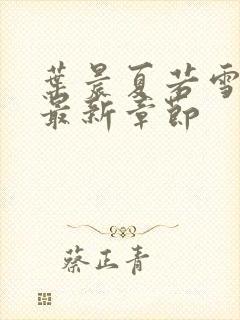 葉晨夏若雪
最新章節
蔡正青